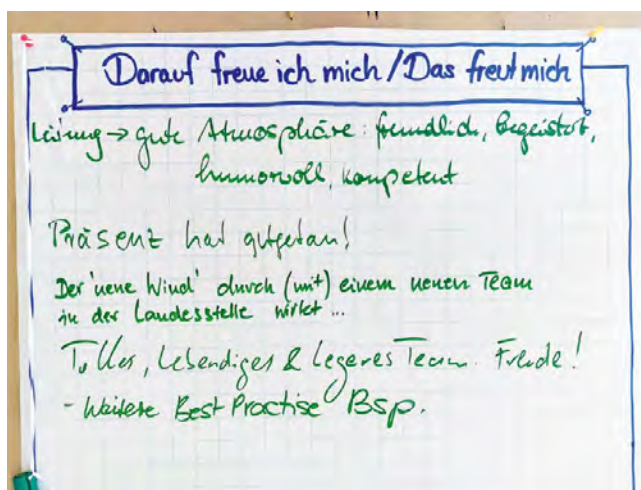 Darauf freue ich mich / Das freut mich
Leitung → gute Atmosphäre: freundlich, begeistert,
humorvoll, kompetent
Präsenz hat gutgetan!
Der 'neue Wind' durch (mit) einem neuen Team
in der Landesstelle wirkt ...
Tolles, Lebendiges & Legeres Team. Freude!
- Weitere Best Practise Bsp.